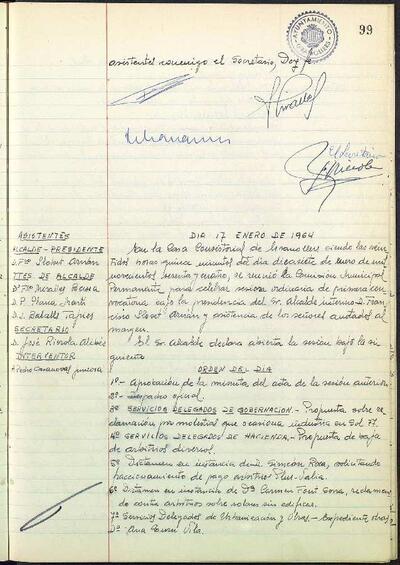 99
AYUNTAMIENTO
GRANOLLERS
asistentes conmigo el Secretario, Doy fe
El Secretario
ASISTENTES
ALCALDE-PRESIDENTE
D. Fco Llobet Arnán
TTES DE ALCALDE
D. P. Plana Martí
SECRETARIO
INTERVENTOR
DIA 17 ENERO DE 1964
En la Casa Consistorial de Granollers siendo las vein
tidos horas quince minutos del día diecisiete de Enero de mil
novecientos sesenta y cuatro, se reunió la Comisión Municipal
Permanente para celebrar sesión ordinaria de primera con
vocatoria bajo la presidencia del Sr. Alcalde interino D. Fran
cisco Llobet Arnán y asistencia de los señores anotados al
margen.
El Sr. Alcalde declara abierta la sesión bajo la si
guiente
ORDEN DEL DIA
1º- Aprobación de la minuta del acta de la sesión anterior.
2º- Despacho oficial.
3º SERVICIOS DELEGADOS DE GOBERNACION.- Propuesta sobre re
clamación por molestias que ocasiona industria en Sol 77.
4º SERVICIOS DELEGADOS DE HACIENDA.- Propuesta de baja
de arbitrios diversos.
5º Dictamen en instancia de D. Simeón Rosa, solicitando
fraccionamiento de pago arbitrio Plus-Valia.
6º Dictamen en instancia de Dª Carmen Font Sora, reclaman
do contra arbitrio sobre solares sin edificar.
7º Servicios Delegados de Urbanización y Obras.- Expediente obras
Dª Ana Vila.